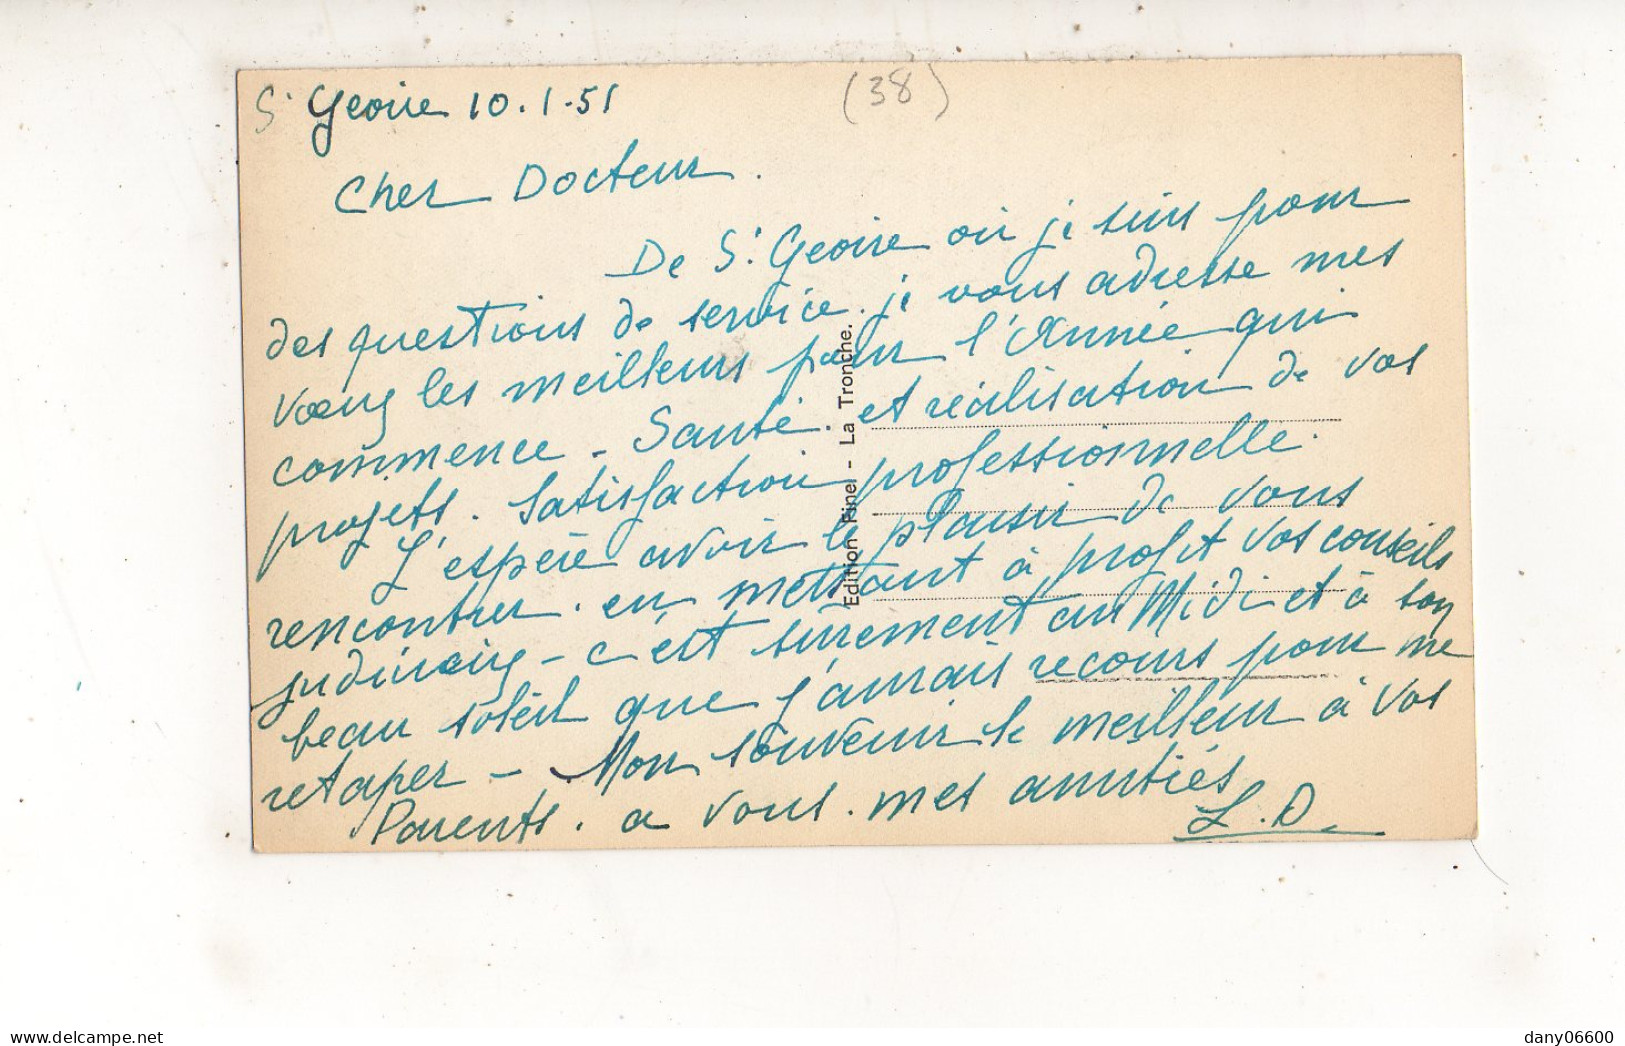 St Geoire 10.1.51
(38)
Cher Docteur.
De St. Geoire où je suis pour
des questions de service. je vous adresse mes
voeux les meilleurs pour l'Année qui
commence - Santé. et réalisation de vos
projets. Satisfaction professionnelle.
J'espère avoir le plaisir de vous
rencontrer. en mettant à profit vos conseils
judicieux - c'est sûrement au Midi et à son
beau soleil que j'aurais recours pour me
retaper - Mon souvenir le meilleur à vos
Parents. a vous. mes amitiés
L.D.
Edition Finel - La Tronche.
delcampe.net
dany06600